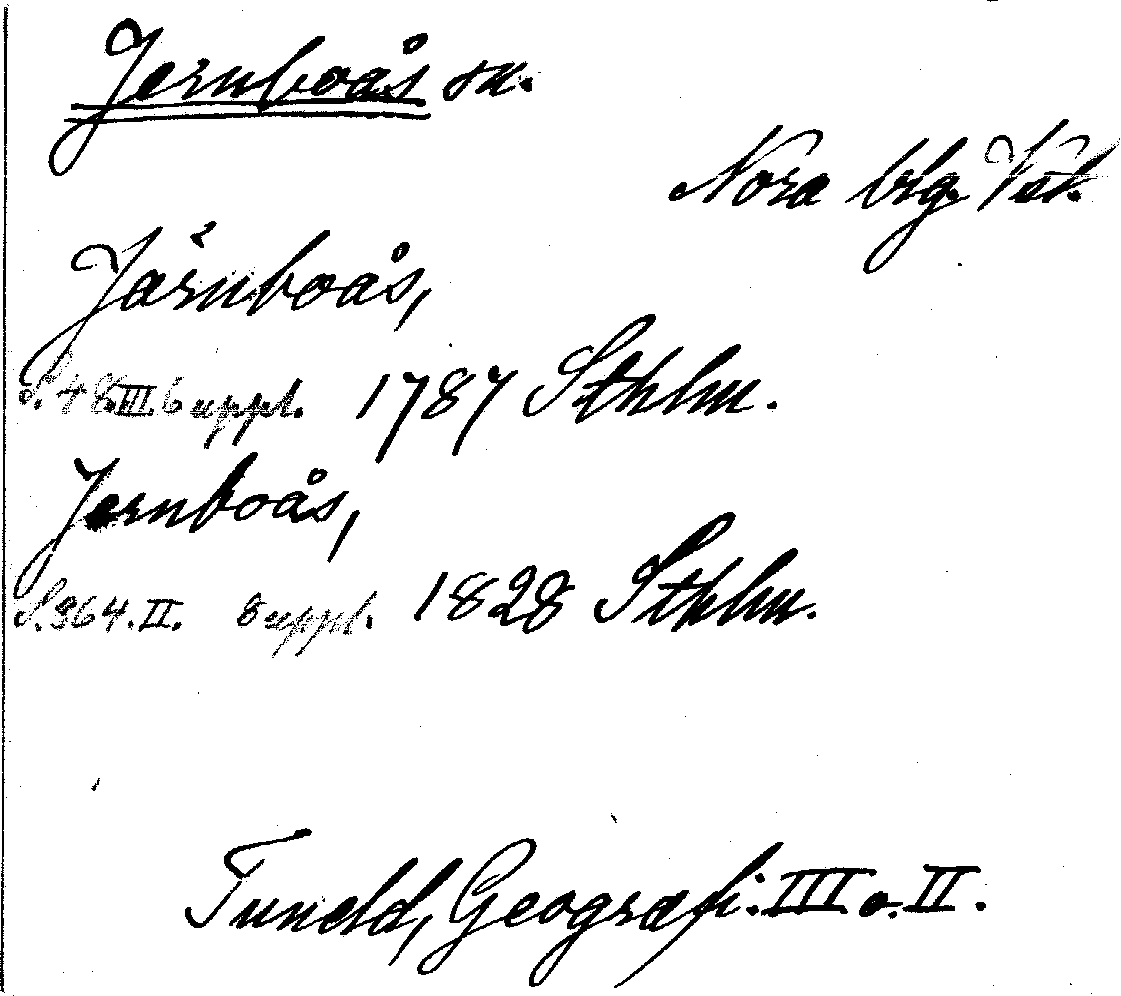 Jernboås sn.
Nora blg. Vstl.
Järnboås,
S. 48. III. 6 uppl. 1787 Sthlm.
Jernboås,
S. 364. II. 8 uppl. 1828 Sthlm.
Tuneld, Geografi. III o. II.